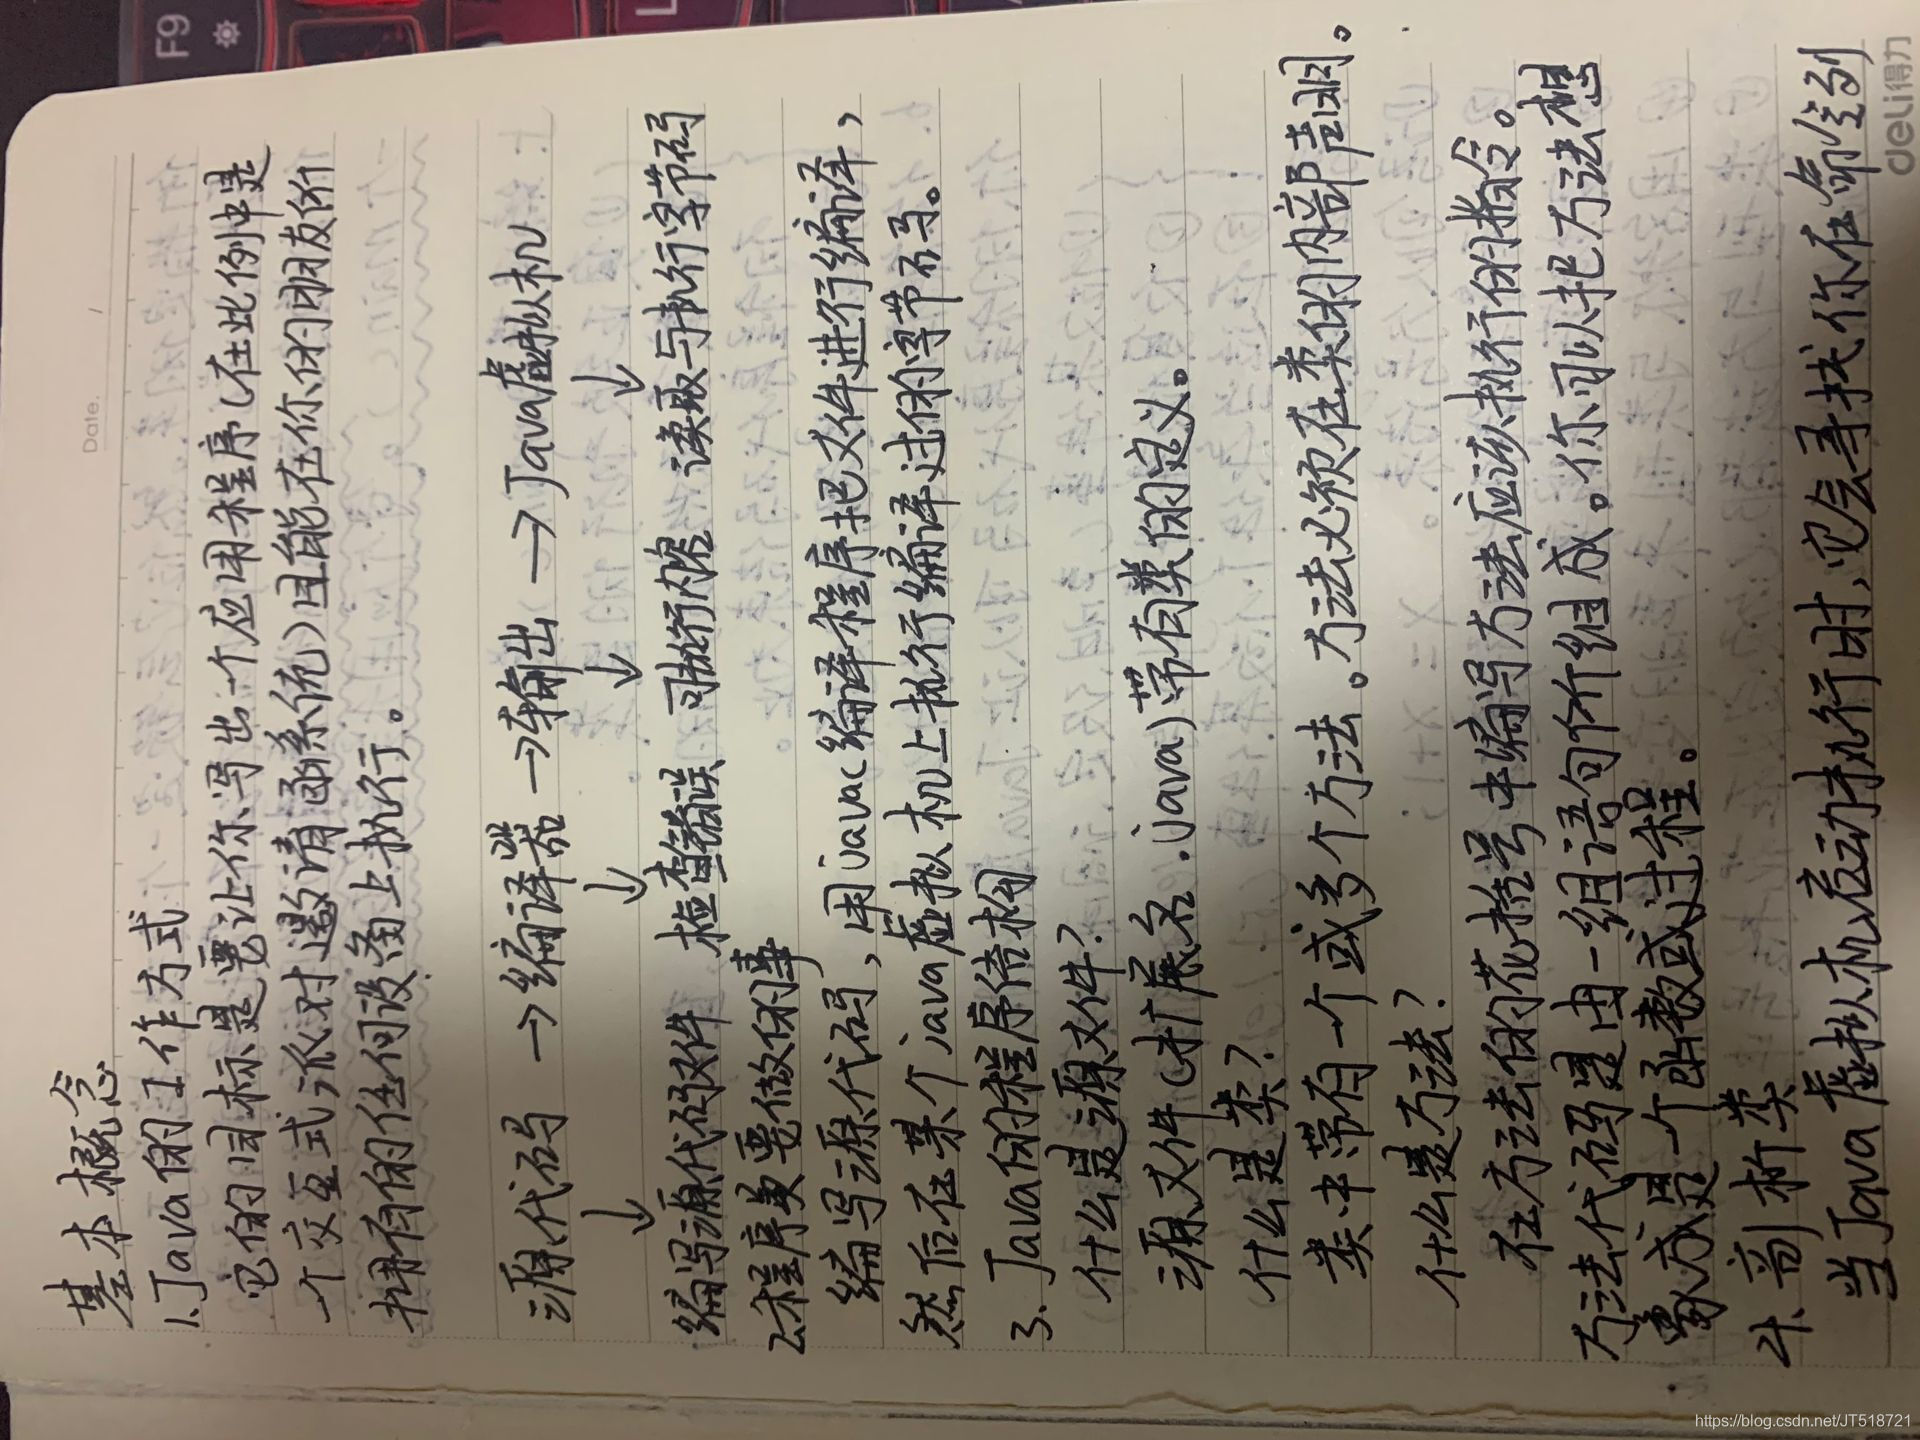 Date.
基本概念
1.Java的工作方式
它的目标是要让你写出一个应用程序(在此例中是
一个交互式派对邀请函系统)且能在你的朋友所
拥有的任何设备上执行。
源代码 → 编译器 → 输出 → Java虚拟机
↓ ↓ ↓ ↓
编写源代码文件 检查错误 可执行内容 读取与执行字节码
2程序员要做的事
编写源代码，用javac编译程序把文件进行编译，
然后在某个java虚拟机上执行编译过的字节码。
3.Java的程序结构
什么是源文件？
源文件(扩展名.java)带有类的定义。
什么是类？
类中带有一个或多个方法。方法必须在类的内部声明。
什么是方法？
在方法的花括号中编写方法应该执行的指令。
方法代码是由一组语句所组成。你可以把方法想
象成是一个函数或过程。
4.剖析类
当Java虚拟机启动执行时，它会寻找你在命令列
deli得力
F9
https://blog.csdn.net/JT518721